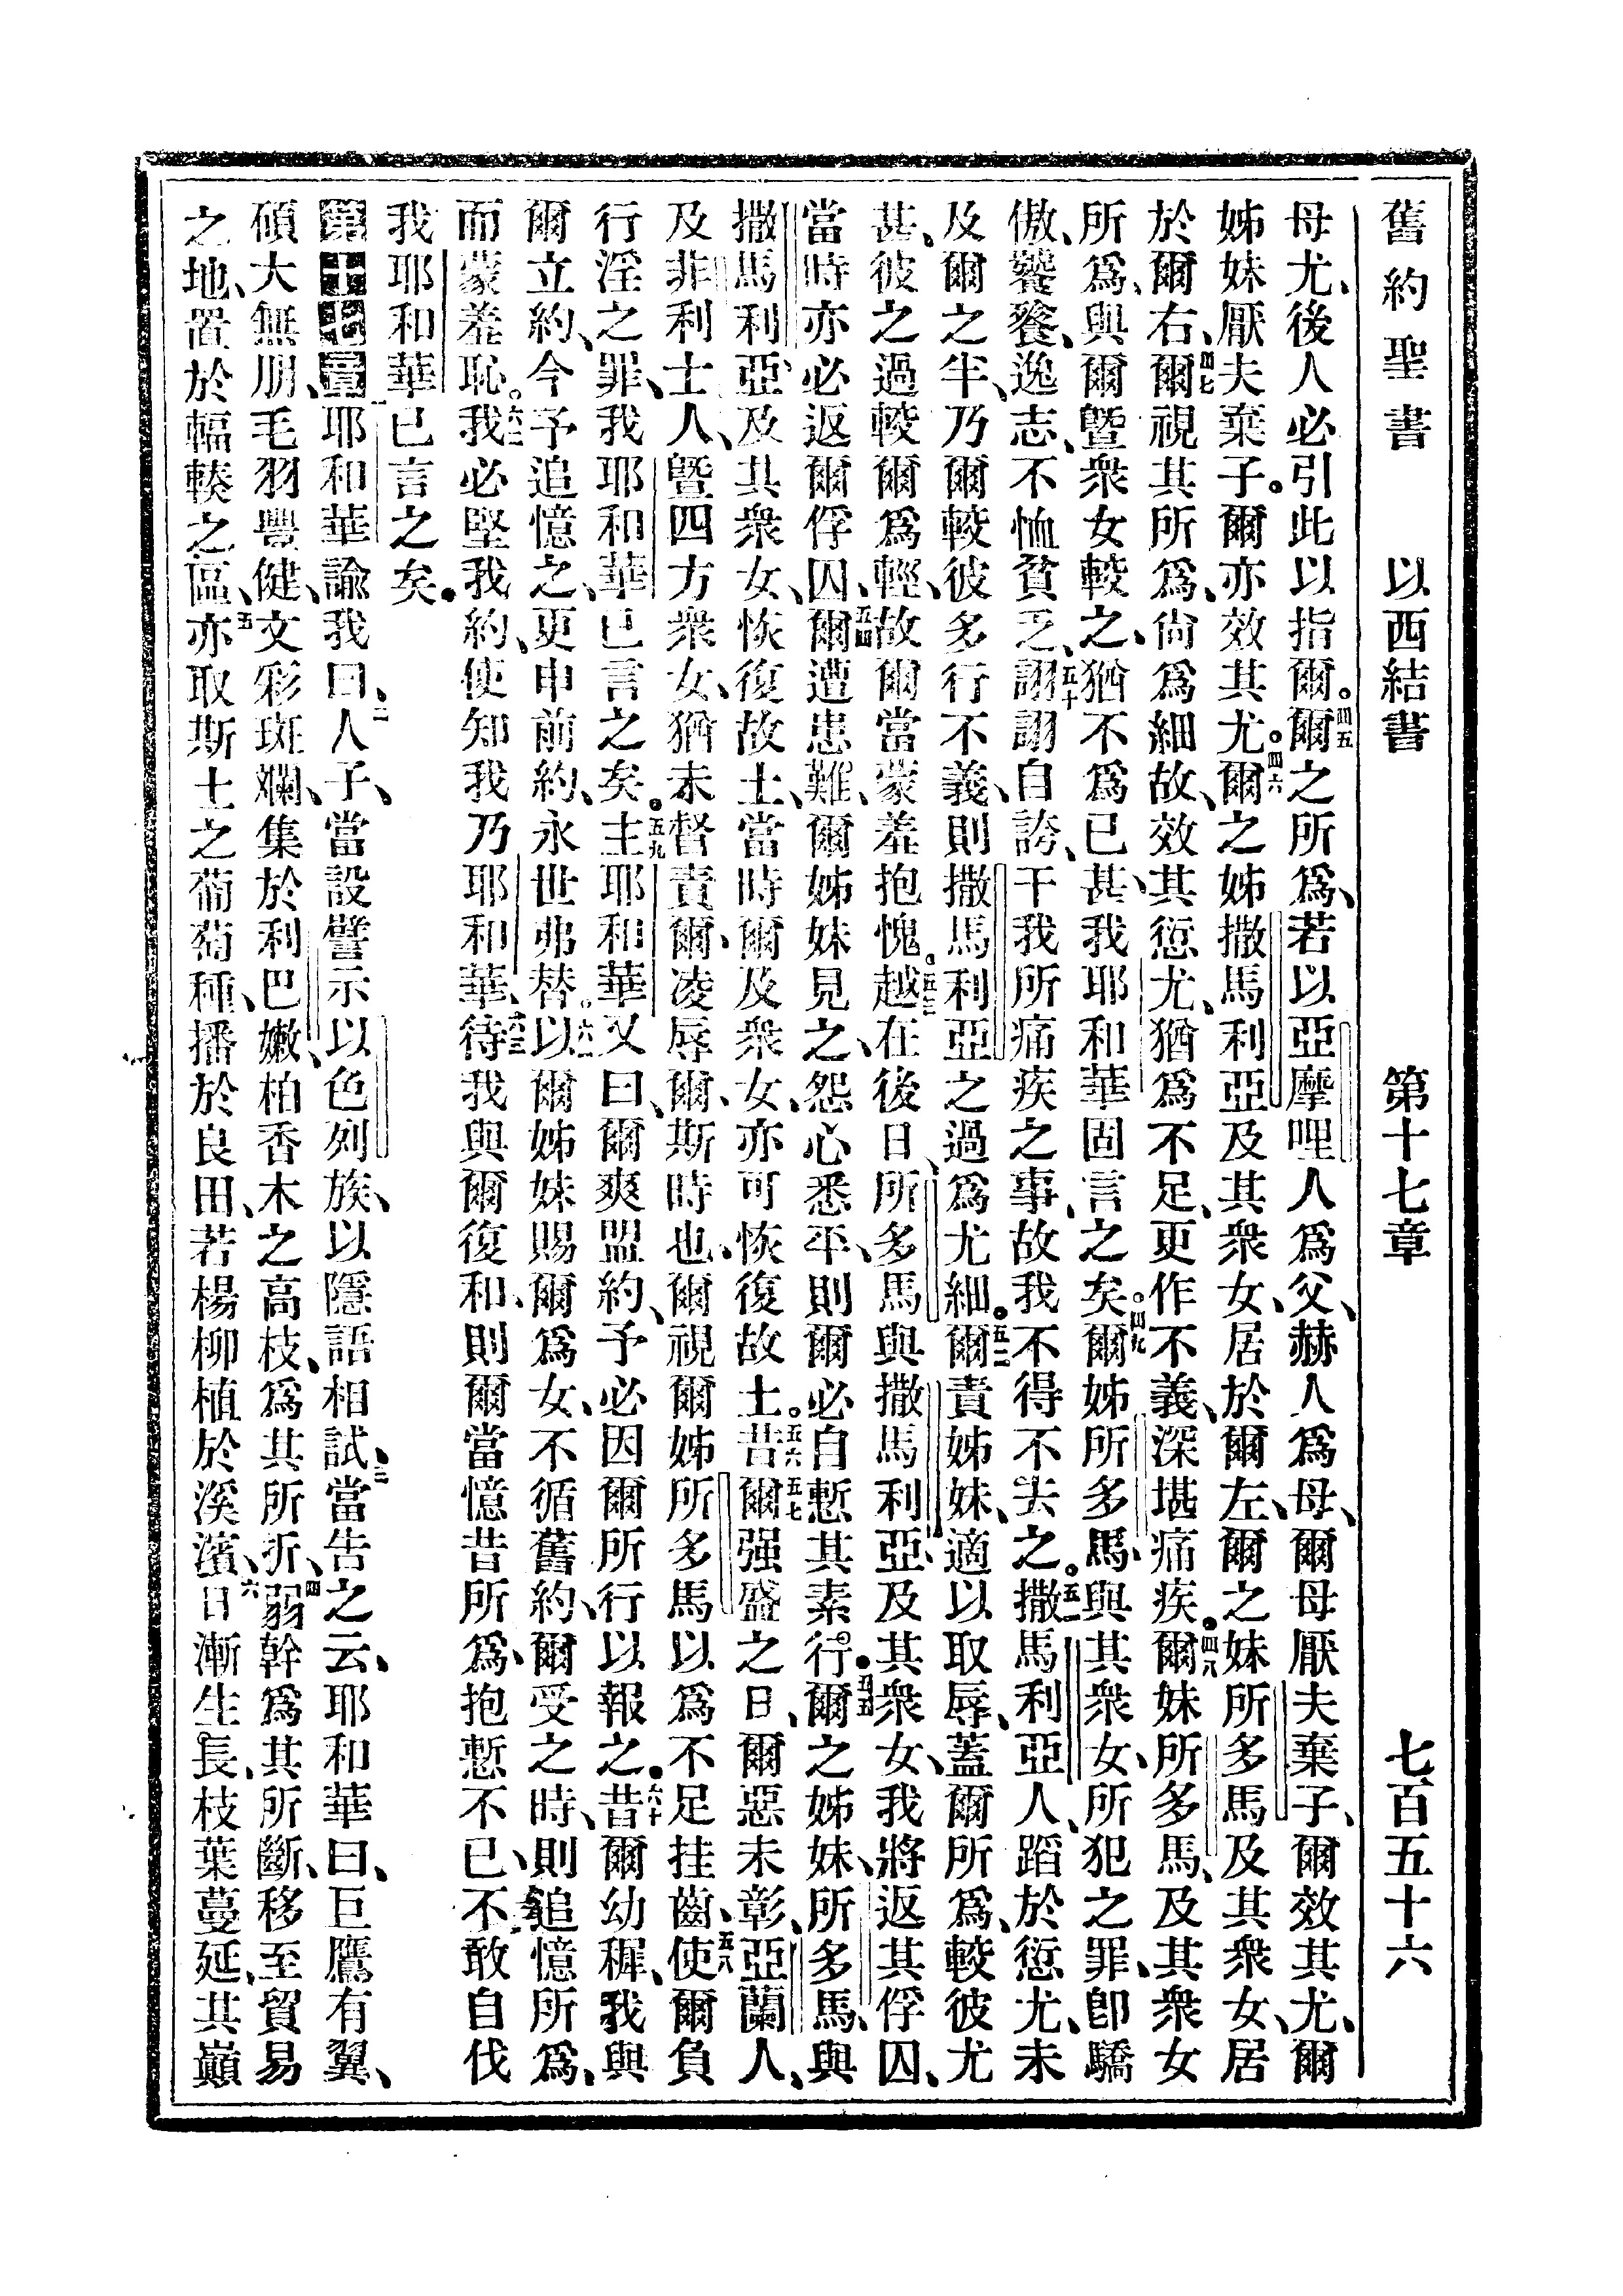 舊約聖書 以西結書 第十七章 七百五十六
母尤、後人必引此以指爾。四五爾之所爲、若以亞摩哩人爲父、赫人爲母、爾母厭夫棄子、爾效其尤、爾
姊妹厭夫棄子。爾亦效其尤。四六爾之姊撒馬利亞及其衆女、居於爾左、爾之妹所多馬及其衆女、居
於爾右、四七爾視其所爲、尙爲細故、效其愆尤、猶爲不足、更作不義、深堪痛疾。四八爾妹所多馬、及其衆女
所爲、與爾曁衆女較之、猶不爲已甚、我耶和華固言之矣。四九爾姊所多馬、與其衆女、所犯之罪、卽驕
傲、饕餮、逸志、不恤貧乏、五十詡詡自誇、干我所痛疾之事、故我不得不去之。五一撒馬利亞人、蹈於愆尤、未
及爾之半、乃爾較彼多行不義、則撒馬利亞之過爲尤細。五二爾責姊妹、適以取辱、蓋爾所爲、較彼尤
甚、彼之過較爾爲輕、故爾當蒙羞抱愧。五三越在後日、所多馬與撒馬利亞、及其衆女、我將返其俘囚、
當時亦必返爾俘囚、五四爾遭患難、爾姊妹見之、怨心悉平、則爾必自慙其素行。五五爾之姊妹、所多馬、與
撒馬利亞、及其衆女、恢復故土、當時爾及衆女、亦可恢復故土。五六五七昔爾强盛之日、爾惡未彰、亞蘭人、
及非利士人、曁四方衆女、猶未督責爾、凌辱爾、斯時也、爾視爾姊所多馬以爲不足挂齒、五八使爾負
行淫之罪、我耶和華已言之矣。五九主耶和華又曰、爾爽盟約、予必因爾所行以報之。六十昔爾幼穉、我與
爾立約、今予追憶之、更申前約、永世弗替。六一以爾姊妹賜爾爲女、不循舊約、爾受之時、則追憶所爲、
而蒙羞恥。六二我必堅我約、使知我乃耶和華、六三待我與爾復和、則爾當憶昔所爲、抱慙不已、不敢自伐
我耶和華已言之矣。
第十七章 一耶和華諭我曰、二人子、當設譬示以色列族、以隱語相試、三當告之云、耶和華曰、巨鷹有翼、
碩大無朋、毛羽豐健、文彩斑斕、集於利巴嫩、柏香木之高枝、爲其所折、四弱幹爲其所斷、移至貿易
之地、置於輻輳之區、五亦取斯土之葡萄種、播於良田、若楊柳植於溪濱、六日漸生長、枝葉蔓延、其巔